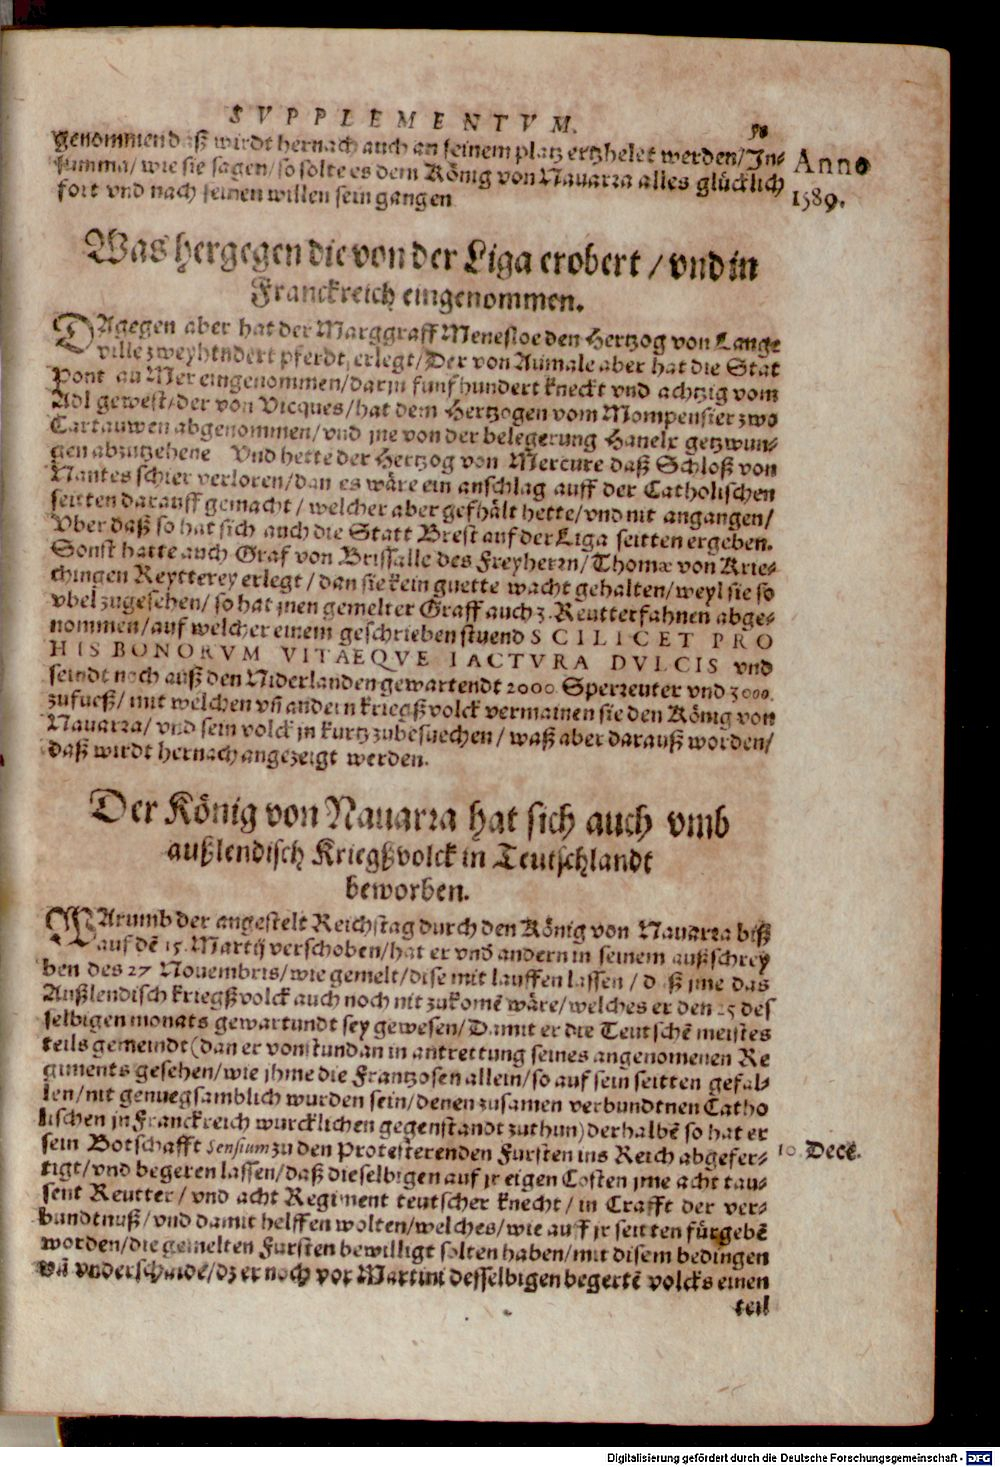 SVPPLEMENTVM.
58
genommen daß wirdt hernach auch an seinem platz ertzhelet werden/Jn⸗
summa/wie sie sagen/so solte es dem König von Nauarra alles glücklich
fort vnd nach seinen willen sein gangen
Anno
1589.
Was hergegen die von der Liga erobert/vnd in
Franckreich eingenommen.
DAgegen aber hat der Marggraff Menesloe den Hertzog von Lange
ville zweyhundert pferdt erlegt/Der von Aumale aber hat die Stat
Pont au Mer eingenommen/darin funfhundert kneckt vnd achtzig vom
Adl gewest/der von Vicques/hat dem Hertzogen vom Mompensier zwo
Cartauwen abgenommen/vnd jne von der belegerung Hanelr getzwun⸗
gen abzutzehene Vnd hette der Hertzog von Mercure daß Schloß von
Nantes schier verloren/dan es wäre ein anschlag auff der Catholischen
seitten darauff gemacht/welcher aber gefhält hette/vnd nit angangen/
Vber daß so hat sich auch die Statt Brest auf der Liga seitten ergeben.
Sonst hatte auch Graf von Brissalle des Freyherrn/Thomæ von Krie⸗
chingen Reytterey erlegt/dan sie kein guette wacht gehalten/weyl sie so
vbel zugesehen/so hat jnen gemelter Graff auch 3. Reutterfahnen abge⸗
nommen/auf welcher einem geschrieben stuend SCILICET PRO
HIS BONORVM VITAEQVE IACTVRA DVLCIS vnd
seindt noch auß den Niderlanden gewartendt 2000 Sperreuter vnd 3000.
zufueß/mit welchen vñ andern kriegßvolck vermainen sie den König von
Nauarra/vnd sein volck jn kurtz zubesuechen/waß aber darauß worden/
daß wirdt hernach angezeigt werden.
Der König von Nauarra hat sich auch vmb
außlendisch Kriegßvolck in Teutschlandt
beworben.
WArumb der angestelt Reichstag durch den König von Nauarra biß
auf dē 15. Martij verschoben/hat er vnd andern in seinem außschrey
ben des 27 Nouembris/wie gemelt/dise mit lauffen lassen/daß jme das
Außlendisch kriegßvolck auch noch nit zukomē wäre/welches er den 25 des
selbigen monats gewartundt sey gewesen/Damit er die Teutschē meistes
teils gemeindt(dan er von stundan in antrettung seines angenomenen Re
giments gesehen/wie jhme die Frantzosen allein/so auf sein seitten gefal⸗
len/nit genuegsamblich wurden sein/denen zusamen verbundtnen Catho
lischen jn Franckreich wurcklichen gegenstandt zuthun)derhalbē so hat er
sein Botschafft Sensium zu den Protesterenden Fursten ins Reich abgefer⸗
tigt/vnd begeren lassen/daß dieselbigen auf jr eigen Costen jme acht tau⸗
sent Reutter/vnd acht Regiment teutscher knecht/in Crafft der ver⸗
bundtnuß/vnd damit helffen wolten/welches/wie auff jr seitten fürgebē
worden/die gemelten Fursten bewilligt solten haben/mit disem bedingen
vñ vnderschaide/dz er noch vor Martini desselbigen begertē volcks einen
teil
10. Decē.
Digitalisierung gefördert durch die Deutsche Forschungsgemeinschaft - DFG